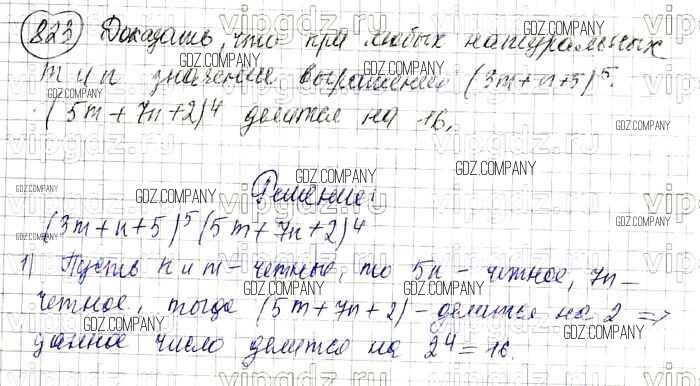 823 Доказать, что при любых натуральных
m и n значение выражения (3m+n+5)⁵·
·(5m+7n+2)⁴ делится на 16.
Решение:
(3m+n+5)⁵(5m+7n+2)⁴
1) Пусть n и m – четные, то 5n – четное, 7n –
четное, тогда (5m+7n+2) – делится на 2 =>
данное число делится на 2⁴=16.
GDZ.COMPANY
vipgdz.ru